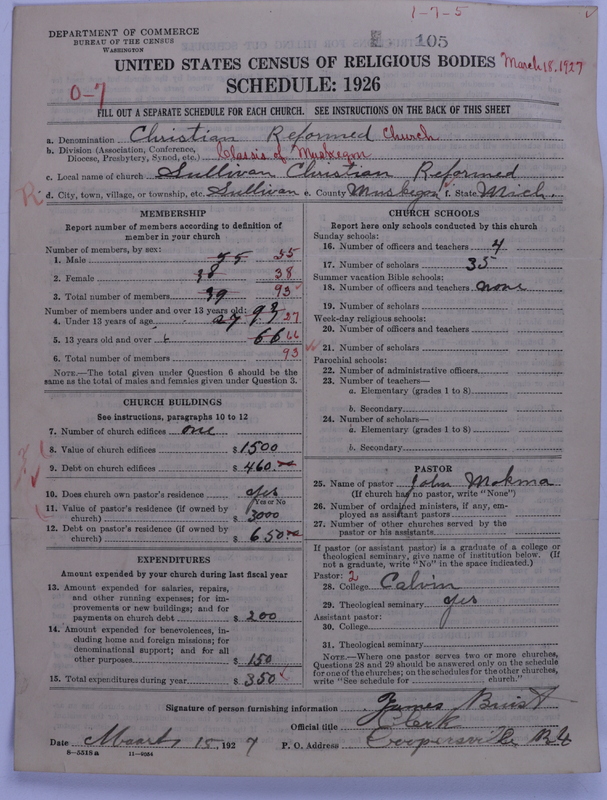 1-7-5
DEPARTMENT OF COMMERCE
BUREAU OF THE CENSUS
WASHINGTON
105
UNITED STATES CENSUS OF RELIGIOUS BODIES March 18, 1927
SCHEDULE: 1926
0-7
FILL OUT A SEPARATE SCHEDULE FOR EACH CHURCH. SEE INSTRUCTIONS ON THE BACK OF THIS SHEET
a. Denomination Christian Reformed Church
b. Division (Association, Conference, Diocese, Presbytery, Synod, etc.) Classis of Muskegon
c. Local name of church Sullivan Christian Reformed
R d. City, town, village, or township, etc. Sullivan e. County Muskegon f. State Mich.
MEMBERSHIP
Report number of members according to definition of
member in your church
Number of members, by sex:
1. Male 55 55
2. Female 38 38
3. Total number of members 39 93
Number of members under and over 13 years old: 93
4. Under 13 years of age 27 27
5. 13 years old and over 66 66
6. Total number of members 93
NOTE.—The total given under Question 6 should be the
same as the total of males and females given under Question 3.
CHURCH BUILDINGS
See instructions, paragraphs 10 to 12
7. Number of church edifices one
8. Value of church edifices $ 1500
9. Debt on church edifices $ 460
10. Does church own pastor's residence yes
Yes or No
11. Value of pastor's residence (if owned by
church) $ 3000
12. Debt on pastor's residence (if owned by
church) $ 650
EXPENDITURES
Amount expended by your church during last fiscal year
13. Amount expended for salaries, repairs,
and other running expenses; for im-
provements or new buildings; and for
payments on church debt $ 200
14. Amount expended for benevolences, in-
cluding home and foreign missions; for
denominational support; and for all
other purposes $ 150
15. Total expenditures during year $ 350
CHURCH SCHOOLS
Report here only schools conducted by this church
Sunday schools:
16. Number of officers and teachers 4
17. Number of scholars 35
Summer vacation Bible schools:
18. Number of officers and teachers none
19. Number of scholars
Week-day religious schools:
20. Number of officers and teachers
21. Number of scholars
Parochial schools:
22. Number of administrative officers
23. Number of teachers—
a. Elementary (grades 1 to 8)
b. Secondary
24. Number of scholars—
a. Elementary (grades 1 to 8)
b. Secondary
PASTOR
25. Name of pastor John Mokma
(If church has no pastor, write "None")
26. Number of ordained ministers, if any, em-
ployed as assistant pastors
27. Number of other churches served by the
pastor or his assistants
If pastor (or assistant pastor) is a graduate of a college or
theological seminary, give name of institution below. (If
not a graduate, write "No" in the space indicated.)
Pastor: 2
28. College Calvin
29. Theological seminary yes
Assistant pastor:
30. College
31. Theological seminary
NOTE.—Where one pastor serves two or more churches,
Questions 28 and 29 should be answered only on the schedule
for one of the churches; on the schedules for the other churches,
write "See schedule for church."
Signature of person furnishing information James Buist
Official title Clerk
Date Maart 15, 1927 P. O. Address Coopersville R4
8-5518 a 11-9054